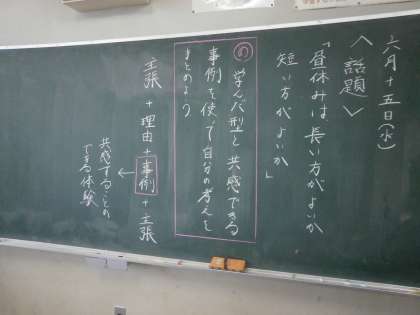 六月十五日(水)
〈話題〉
「昼休みは長い方がよいか
短い方がよいか」
め 学んだ型と共感できる
事例を使って自分の考えを
まとめよう
主張+理由+事例+主張
共感することの
できる体験